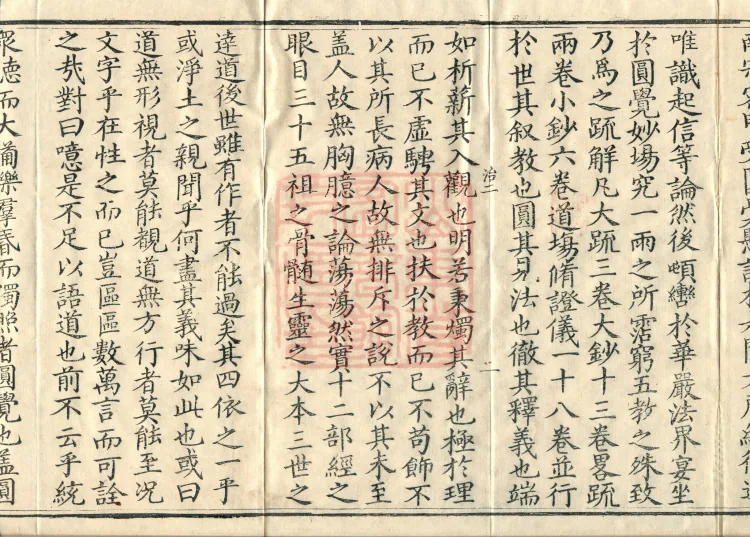 唯識起信等論然後頓轡於華嚴法界宴坐
於圓覺妙場究一雨之所霑窮五教之殊致
乃爲之疏解凡大疏三卷大鈔十三卷畧疏
兩卷小鈔六卷道場脩證儀一十八卷並行
於世其叙教也圓其見法也徹其釋義也端
治二
二
如析薪其入觀也明若秉燭其辭也極於理
而已不虛騁其文也扶於教而已不苟飾不
以其所長病人故無排斥之說不以其未至
盖人故無胸臆之論蕩蕩然實十二部經之
眼目三十五祖之骨髄生靈之大本三世之
達道後世雖有作者不能過矣其四依之一乎
或淨土之親聞乎何盡其義味如此也或曰
道無形視者莫能覩道無方行者莫能至况
文字乎在性之而已豈區區數萬言而可詮
之㢤對曰噫是不足以語道也前不云乎統
衆德而大備爍羣昏而獨照者圓覺也盖圓